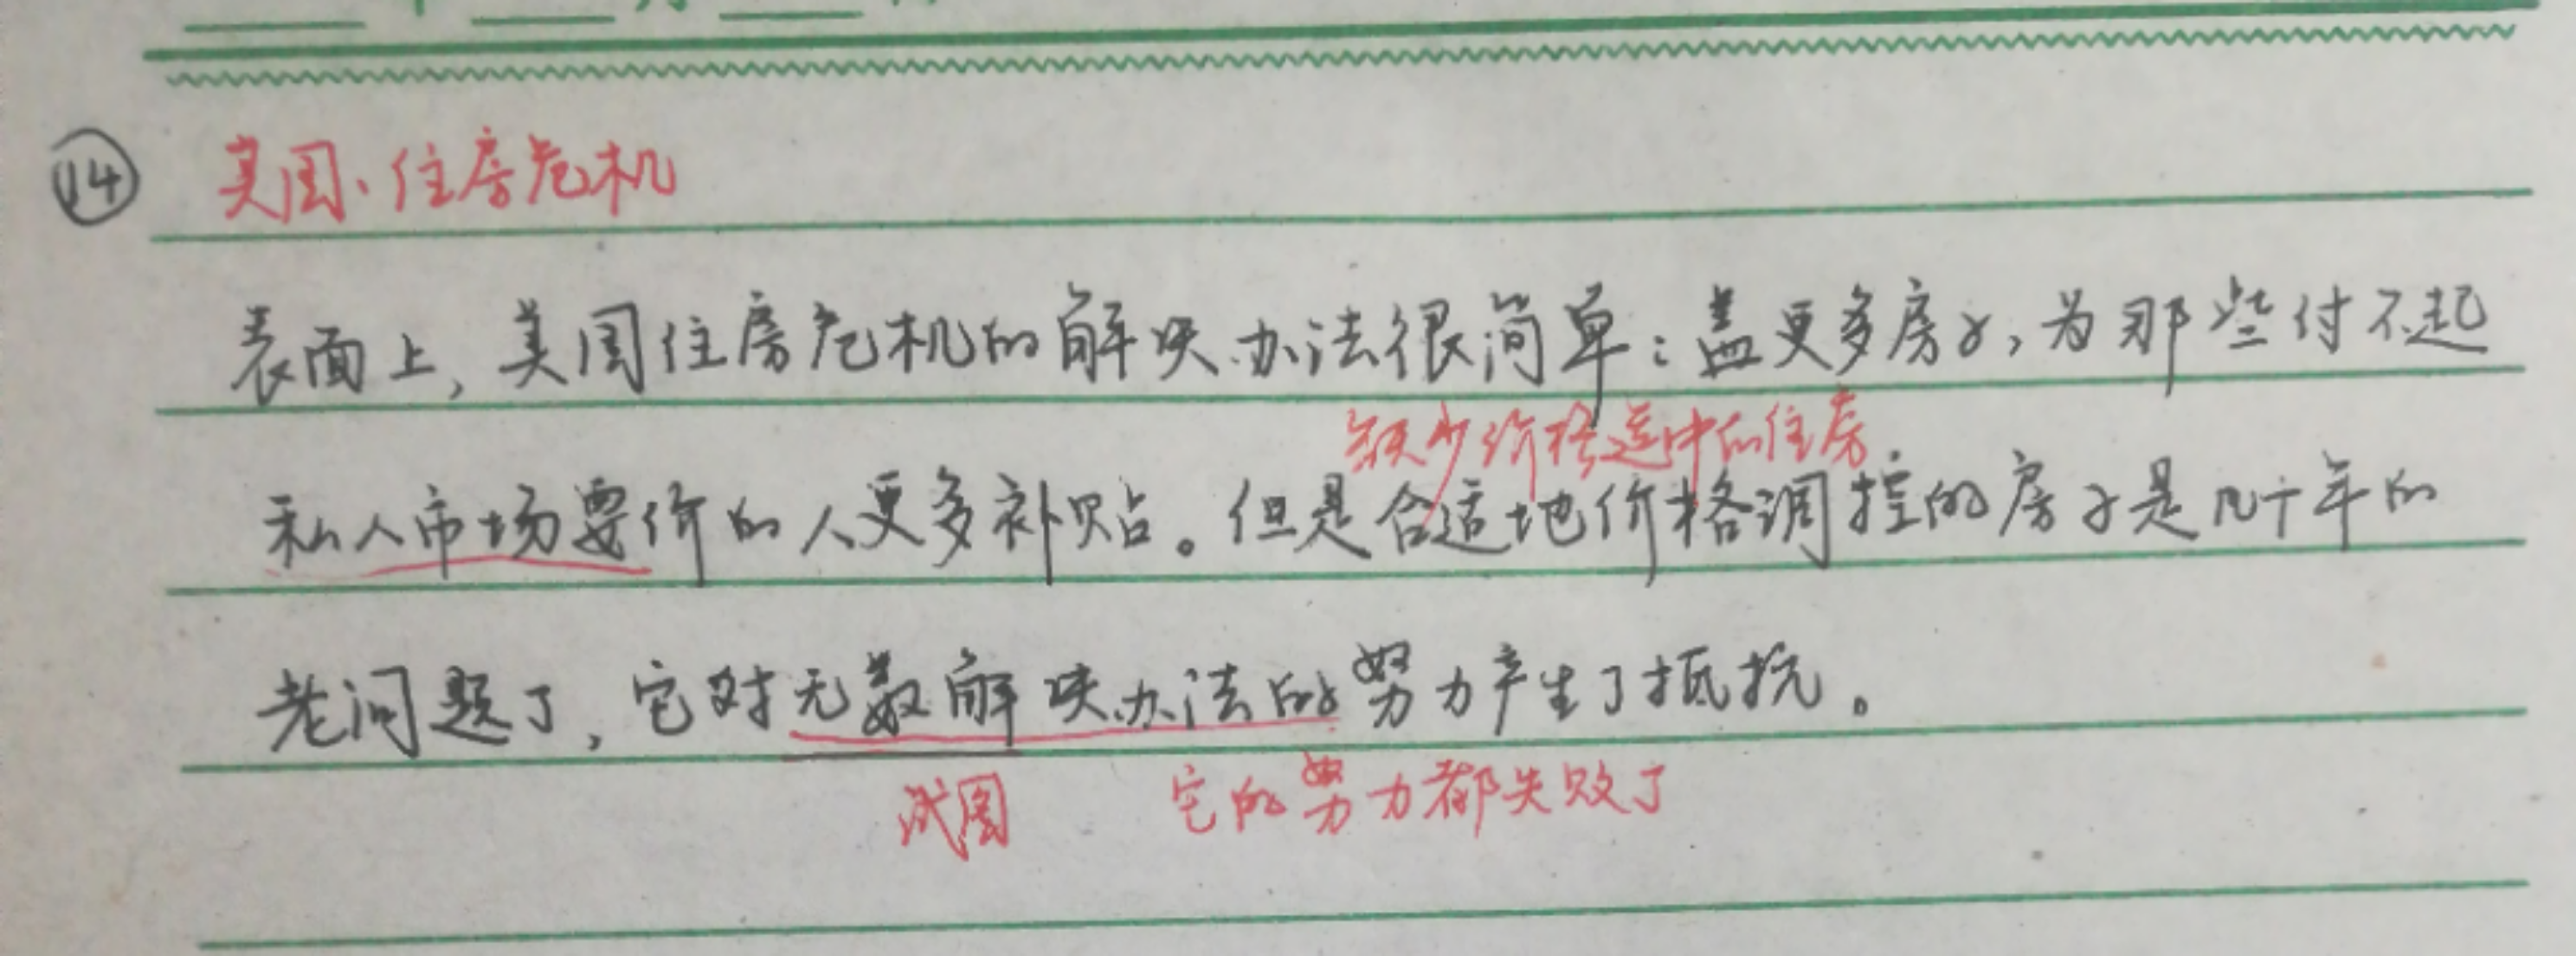 年 月 日
⑭ 美国·住房危机
表面上,美国住房危机的解决办法很简单:盖更多房子,为那些付不起
缺少价格适中的住房
私人市场要价的人更多补贴。但是合适地价格调控的房子是几十年的
老问题了,它对无数解决办法的努力产生了抵抗。
试图 它的努力都失败了